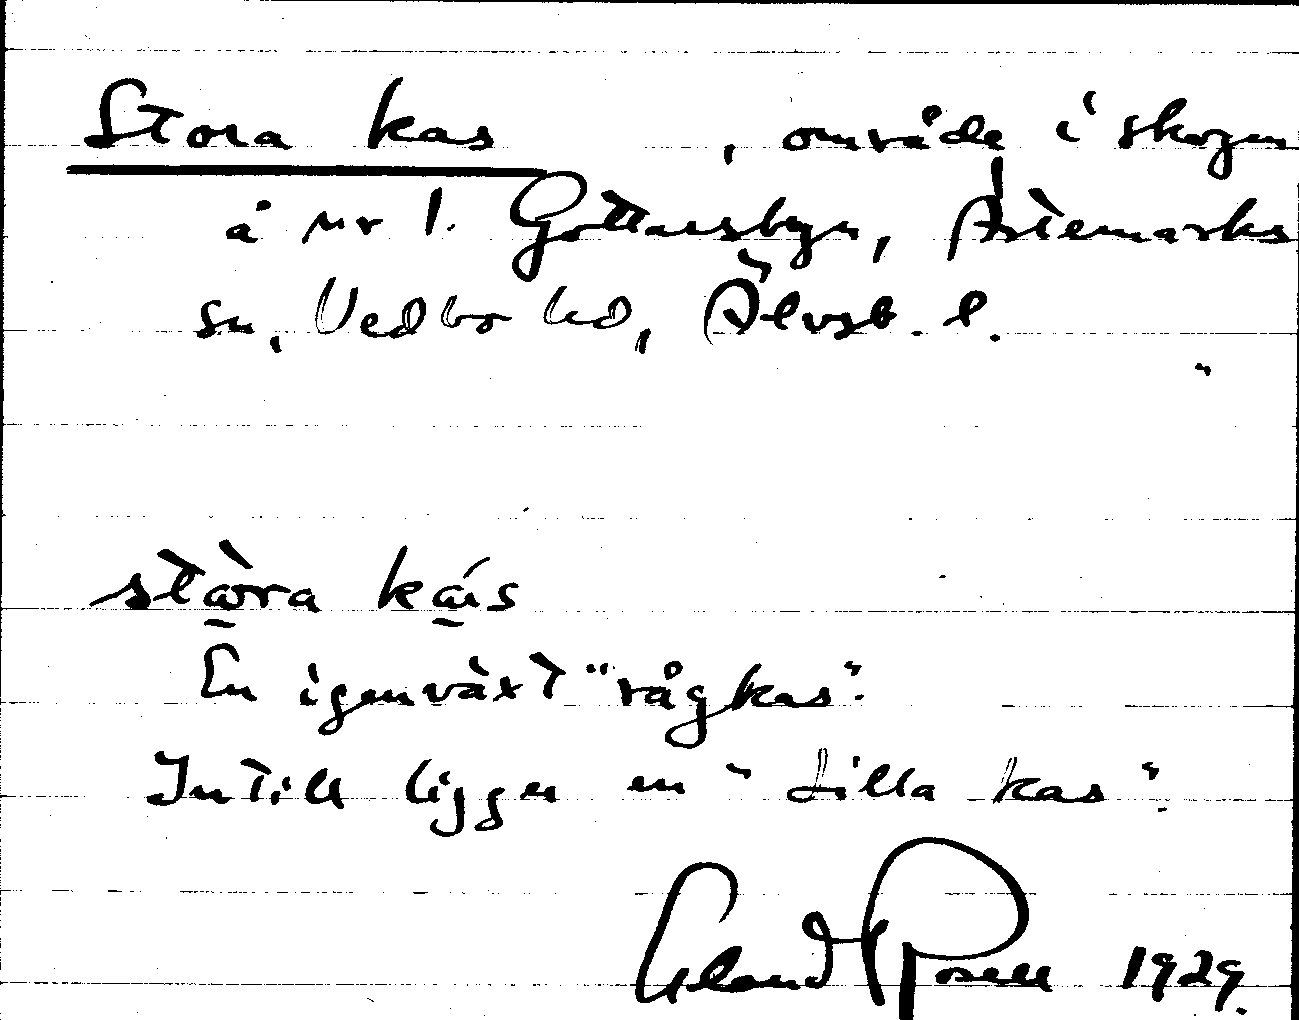 Stora kas , område i skogen
å nr 1. Gottarsbyn, Årtemarks
sn, Vedbo hd, Älvsb. l.
stὼra kás
En igenväxt "rågkas".
Intill ligger en "Lilla kas".
Erland Rosell 1929.